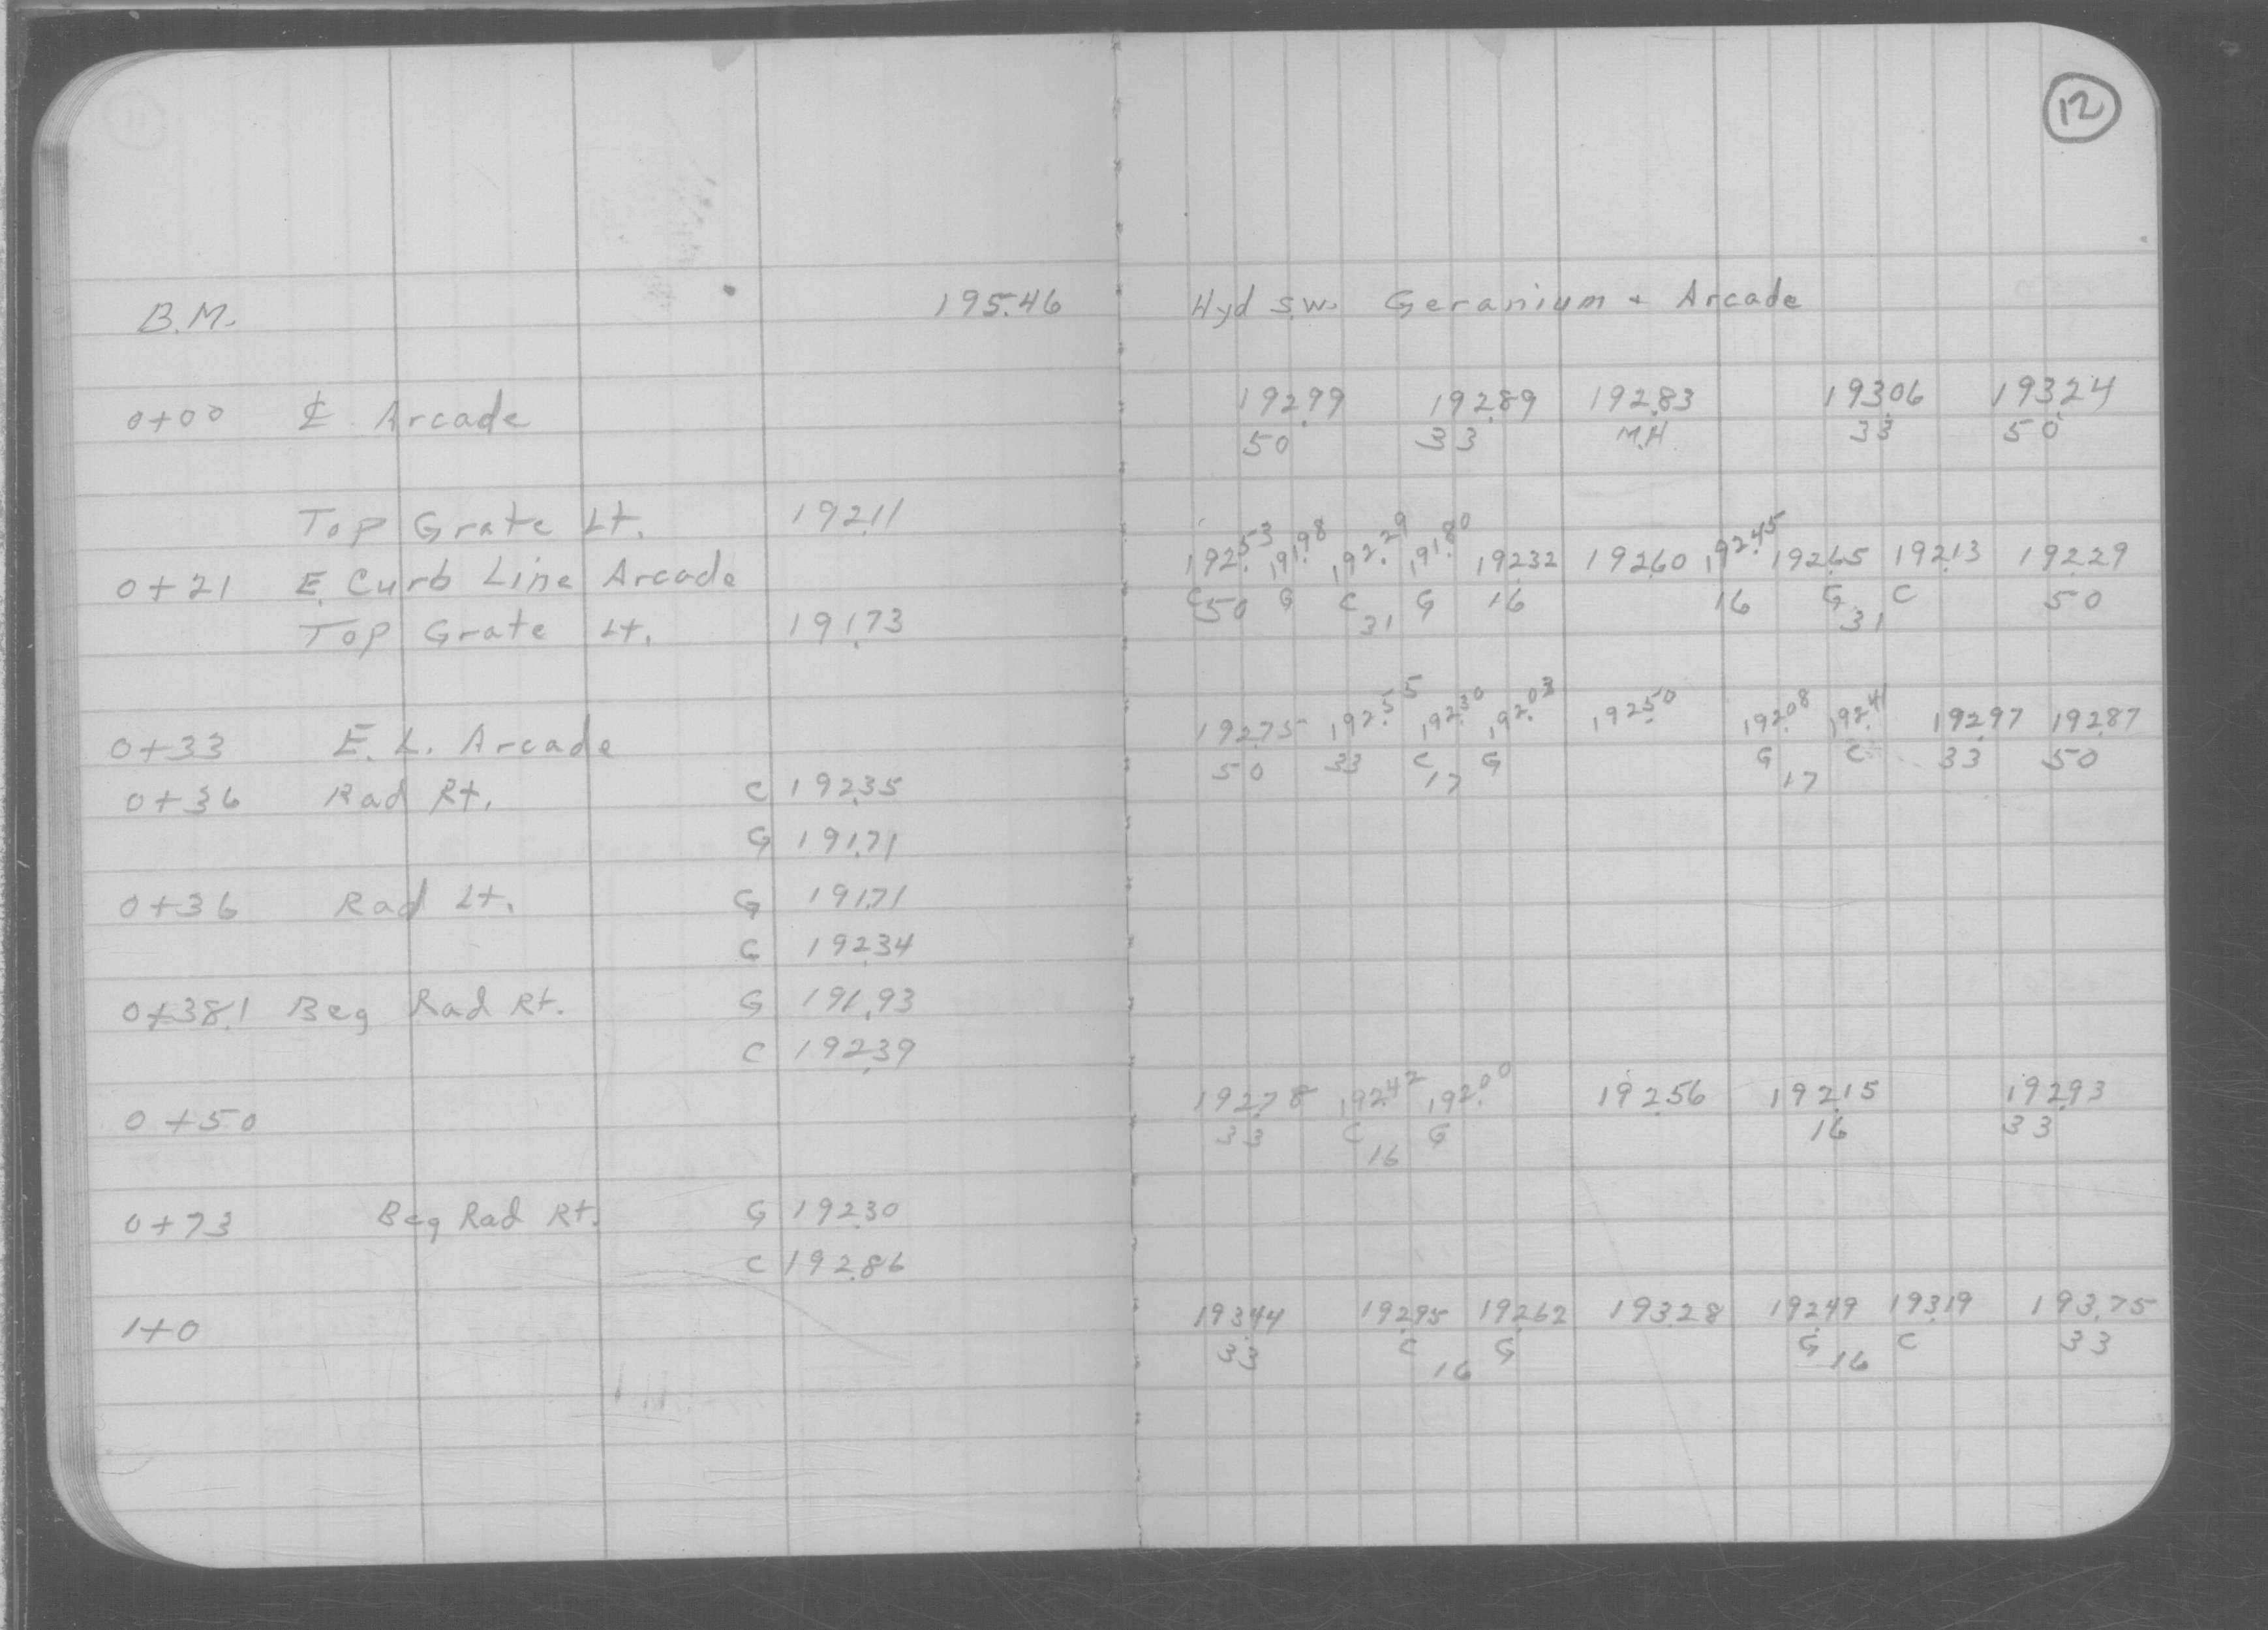 12
B.M. 195.46 Hyd S.W. Geranium + Arcade
0+00 ℄ Arcade 192.99 192.89 192.83 193.06 193.24
50 33 M.H. 33 50
Top Grate Lt. 192.11
0+21 E. Curb Line Arcade 192.53 191.98 192.29 191.80 192.32 192.60 192.45 192.65 192.13 192.29
C 50 G C 31 G 16 16 G 31 C 50
Top Grate Lt. 191.73
0+33 E.L. Arcade 192.75 192.55 192.30 192.03 192.50 192.08 192.41 192.97 192.87
50 33 C 17 G G 17 C 33 50
0+36 Rad Rt. C 192.35
G 191.71
0+36 Rad Lt. G 191.71
C 192.34
0+38.1 Beg Rad Rt. G 191.93
C 192.39
0+50 192.78 192.42 192.00 192.56 192.15 192.93
33 C 16 G 16 33
0+73 Beg Rad Rt. G 192.30
C 192.86
1+0 193.44 192.95 192.62 193.28 192.49 193.19 193.75
33 C 16 G G 16 C 33